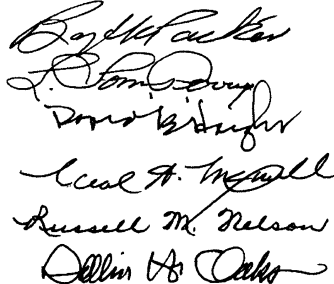 Boyd K Packer
L. Tom Perry
David B Haight
Neal A. Maxwell
Russell M. Nelson
Dallin H. Oaks